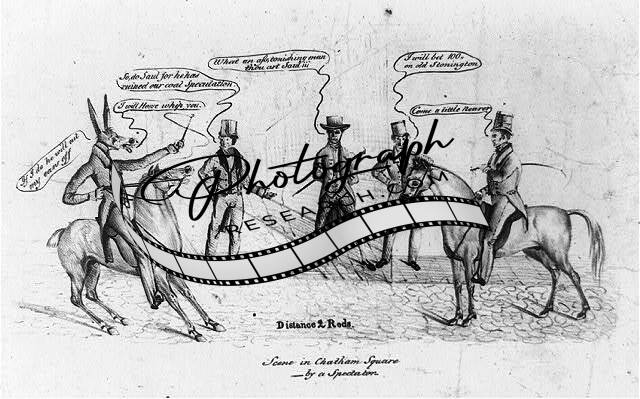 What an asstonishing man
thou art Saul !!!
I will bet 100,
on old Stonington
So do Saul for he has
ruined our coal Speculation
I will Horse whip you.
Come a little nearer
If I do he will eat
my ears off
Photograph
RESEARCH.COM
Distance 2 Rods.
Scene in Chatham Square
— by a Spectator.